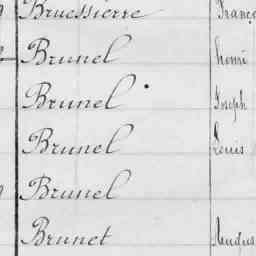 Bruessierre
Brunel henri
Brunel Joseph
Brunel Louis
Brunel
Brunet